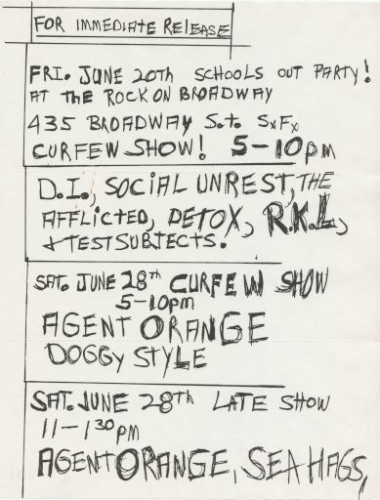 FOR IMMEDIATE RELEASE
FRI. JUNE 20TH SCHOOLS OUT PARTY!
AT THE ROCK ON BROADWAY
435 BROADWAY S.t. S.F.
CURFEW SHOW! 5-10pm
D.I., SOCIAL UNREST, THE
AFFLICTED, DETOX, R.K.L,
& TEST SUBJECTS.
SAT. JUNE 28th CURFEW SHOW
5-10pm
AGENT ORANGE
DOGGY STYLE
SAT. JUNE 28th LATE SHOW
11-1³⁰PM
AGENT ORANGE, SEA HAGS,